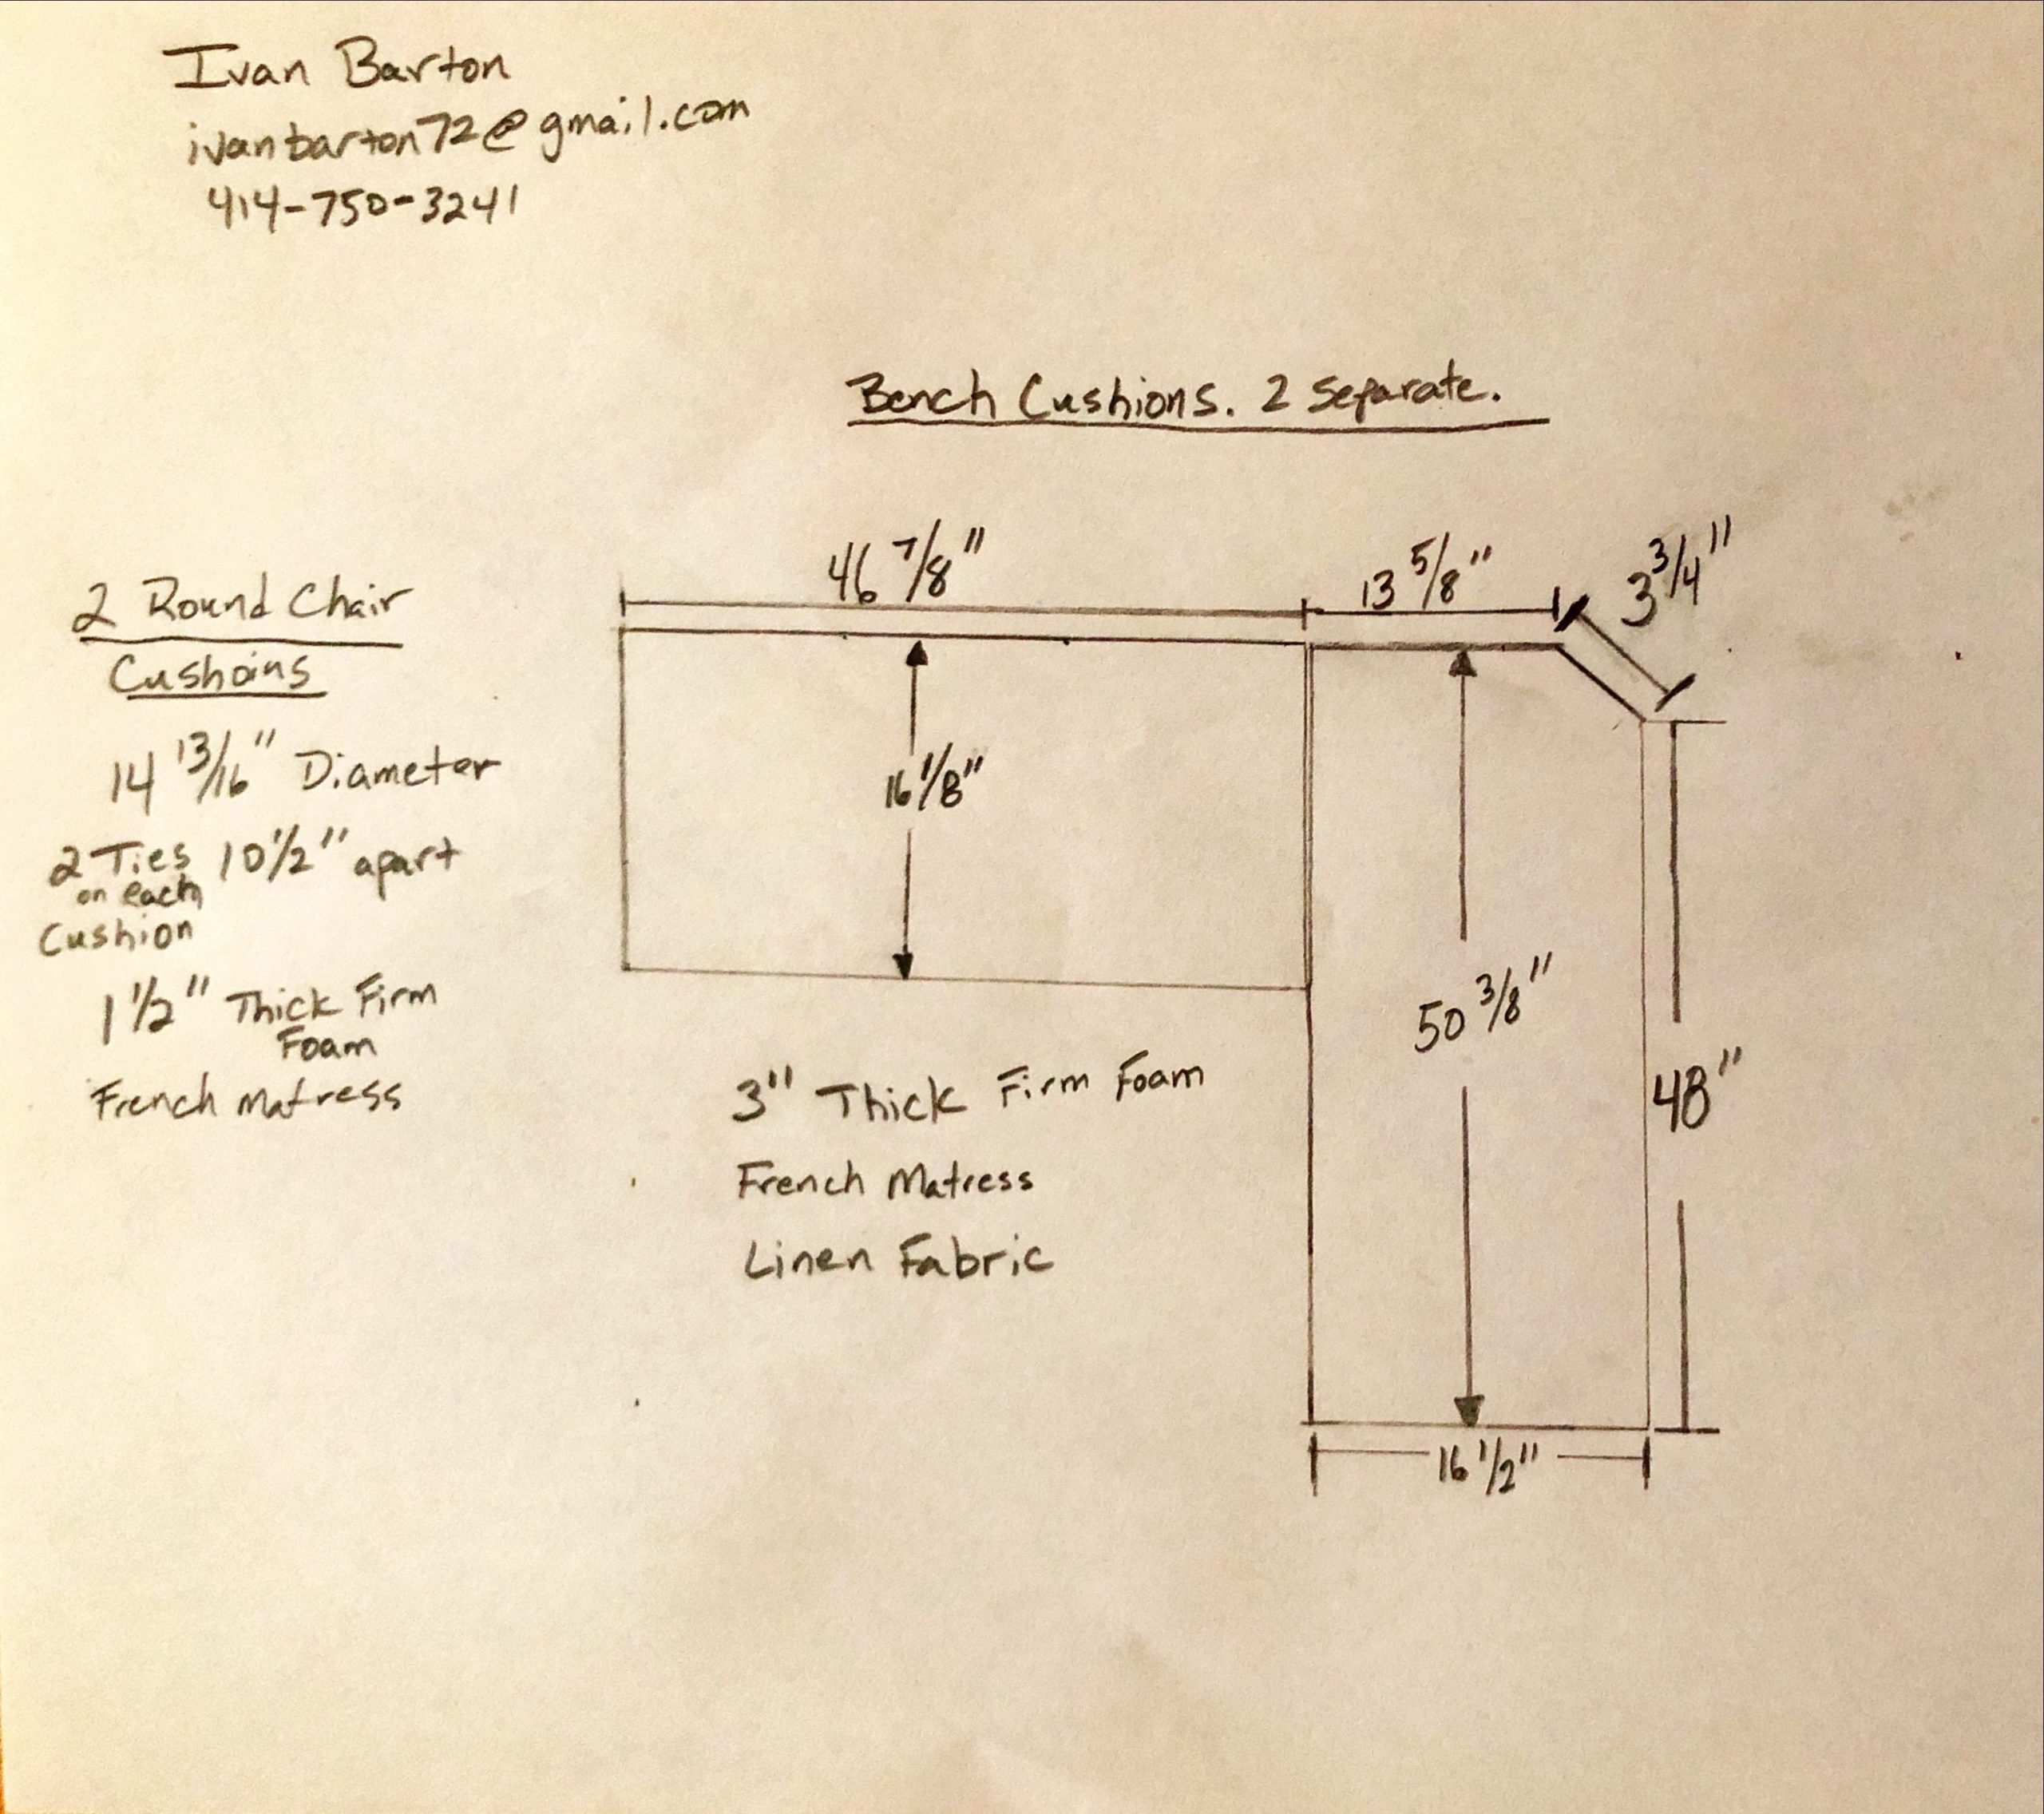 Ivan Barton
ivanbarton72@gmail.com
414-750-3241
Bench Cushions. 2 Separate.
46 7/8"
13 5/8"
3 3/4"
16 1/8"
50 3/8"
48"
16 1/2"
2 Round Chair
Cushoins
14 13/16" Diameter
2 Ties 10 1/2" apart
on each
Cushion
1 1/2" Thick Firm
Foam
French Matress
3" Thick Firm Foam
French Matress
Linen Fabric